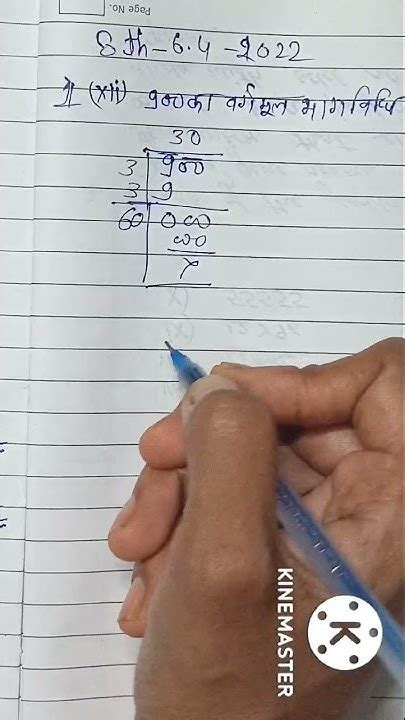 Page No.
8th-6.4-2022
1 (xii) 900का वर्गमूल भागविधि
30
3 900
3 9
60 000
00
×
KINEMASTER